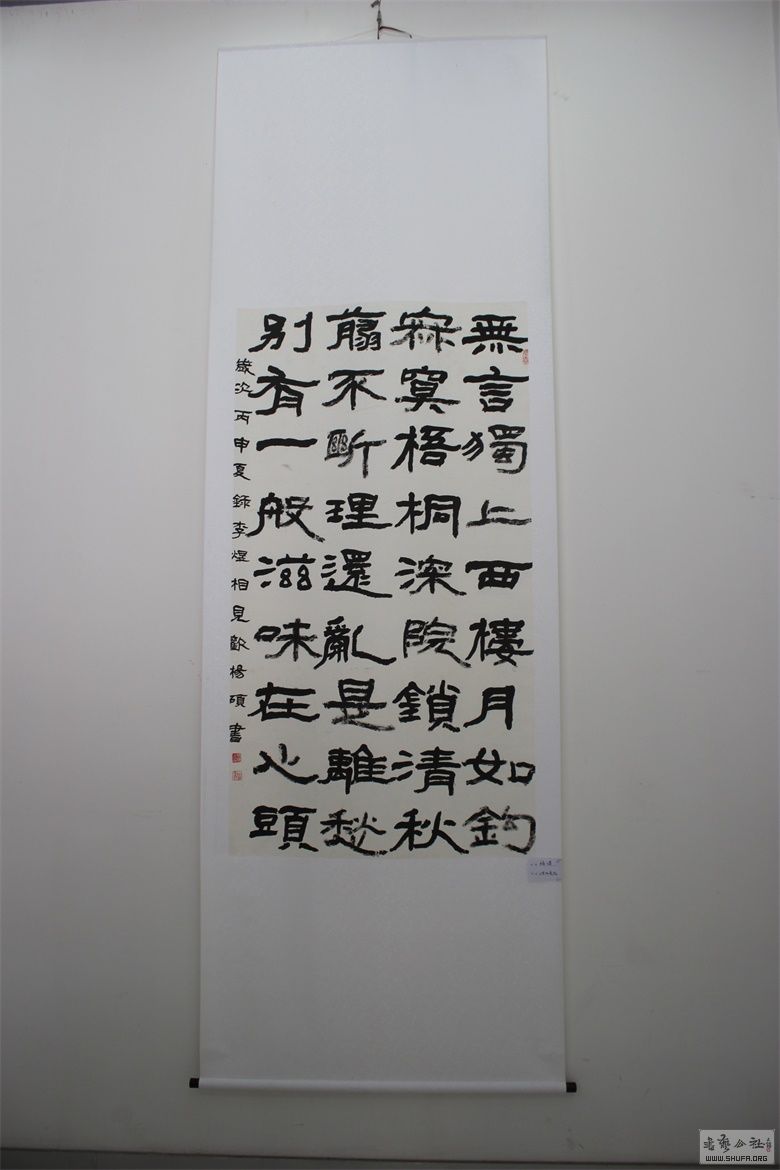 無言獨上西樓月如鉤
寂寞梧桐深院鎖清秋
翦不斷理還亂是離愁
別有一般滋味在心頭
歲次丙申夏錄李煜相見歡楊碩書
書藝公社
WWW.SHUFA.ORG